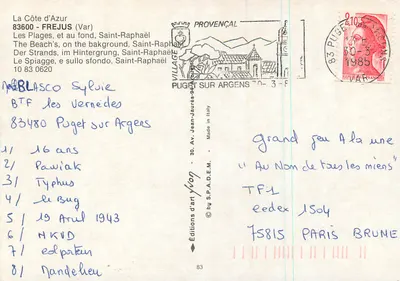 La Côte d'Azur
83600 - FREJUS (Var)
Les Plages, et au fond, Saint-Raphaël
The Beach's, on the bakground, Saint-Raphaël
Der Strands, im Hintergrung, Saint-Raphaël
Le Spiagge, e sullo sfondo, Saint-Raphaël
10 83 0620
VILLAGE PROVENÇAL
PUGET SUR ARGENS
83 PUGET
1985
VAR
BLASCO Sylvie
BTF les Vernedes
83480 Puget sur Argens
1/ 16 ans
2/ Pawiak
3/ Typhus
4/ le Bug
5/ 19 Avril 1943
6/ NKVD
7/ colporteur
8/ Mandelieu
Editions d'art yvon
Made in Italy
© by S.P.A.D.E.M.
83
Grand Jeu A la une
"Au Nom de tous les miens"
TF1
cedex 1504
75815 PARIS BRUNE